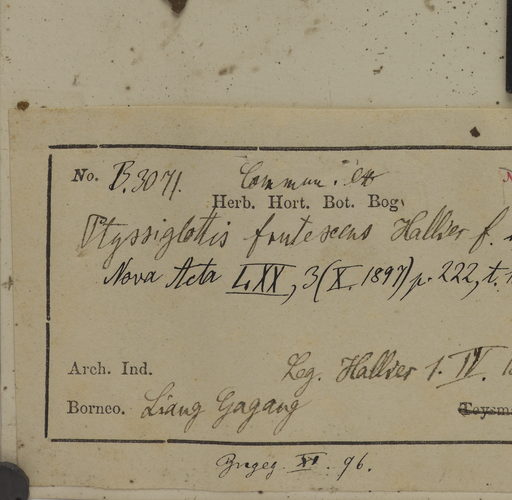 No. B.3071. Commun. ex
Herb. Hort. Bot. Bog.
Ptyssiglottis frutescens Hallier f.
Nova Acta LXX, 3 (X. 1897) p. 222, t.
Arch. Ind. Leg. Hallier 1. IV.
Borneo. Liang Gagang Teysm
XI. 96.